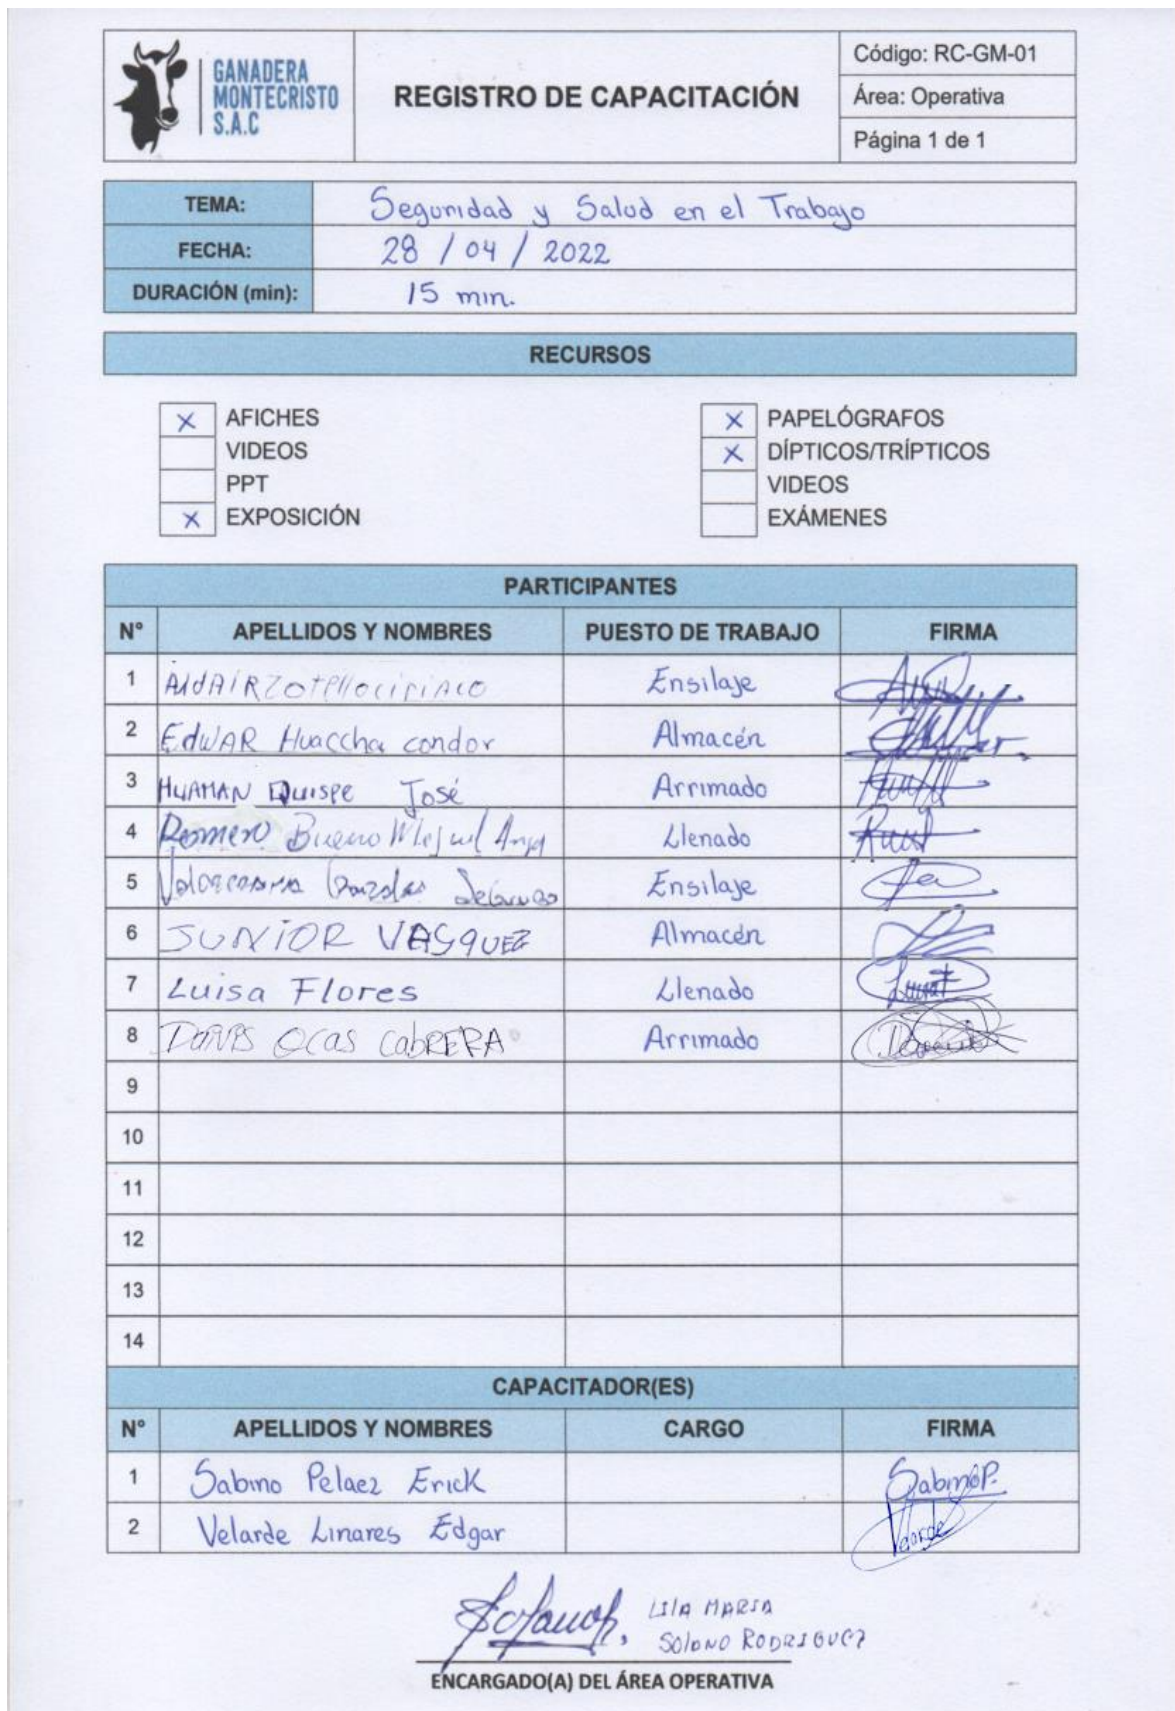 GANADERA
MONTECRISTO
S.A.C
REGISTRO DE CAPACITACIÓN
Código: RC-GM-01
Área: Operativa
Página 1 de 1
TEMA: Seguridad y Salud en el Trabajo
FECHA: 28 / 04 / 2022
DURACIÓN (min): 15 min.
RECURSOS
X AFICHES
VIDEOS
PPT
X EXPOSICIÓN
X PAPELÓGRAFOS
X DÍPTICOS/TRÍPTICOS
VIDEOS
EXÁMENES
PARTICIPANTES
N° APELLIDOS Y NOMBRES PUESTO DE TRABAJO FIRMA
1 Ensilaje
2 EdWAR Huaccha condor Almacén
3 HUAMAN QUISPE José Arrimado
4 Romero Bueno Miguel Angel Llenado
5 Ensilaje
6 JUNIOR VASQUEZ Almacén
7 Luisa Flores Llenado
8 Ocas CabRERA Arrimado
9
10
11
12
13
14
CAPACITADOR(ES)
N° APELLIDOS Y NOMBRES CARGO FIRMA
1 Sabino Pelaez Erick Sabino P.
2 Velarde Linares Edgar Velarde
LILA MARIA
SOLANO RODRIGUEZ
ENCARGADO(A) DEL ÁREA OPERATIVA